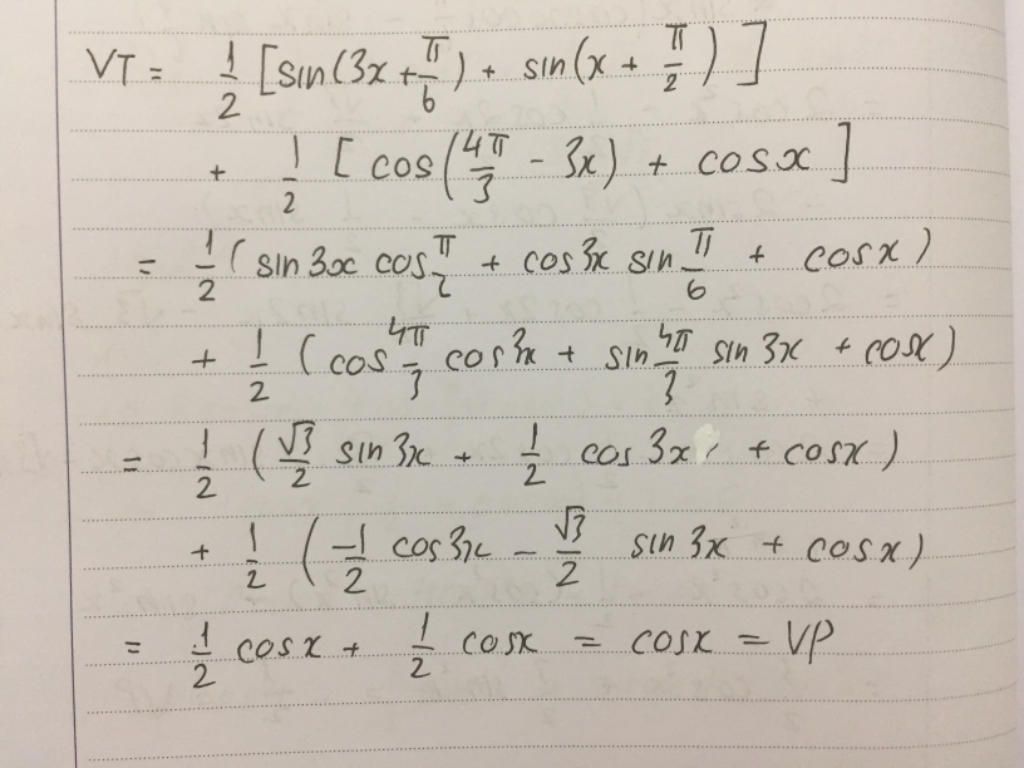 VT = 1/2 [sin(3x + π/6) + sin(x + π/2)]
+ 1/2 [cos(4π/3 - 3x) + cosx]
= 1/2 (sin3x cos π/2 + cos3x sin π/6 + cosx)
+ 1/2 (cos 4π/3 cos3x + sin 4π/3 sin3x + cosx)
= 1/2 (√3/2 sin3x + 1/2 cos3x + cosx)
+ 1/2 (-1/2 cos3x - √3/2 sin3x + cosx)
= 1/2 cosx + 1/2 cosx = cosx = VP